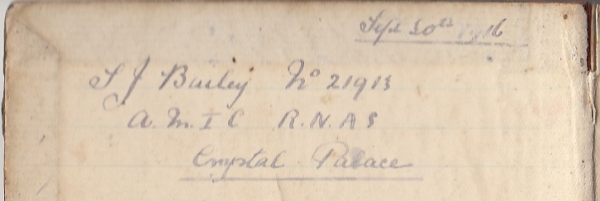 Sept 20th 1916
S J Bailey No 21913
A. M. I C R. N. A S
Crystal Palace